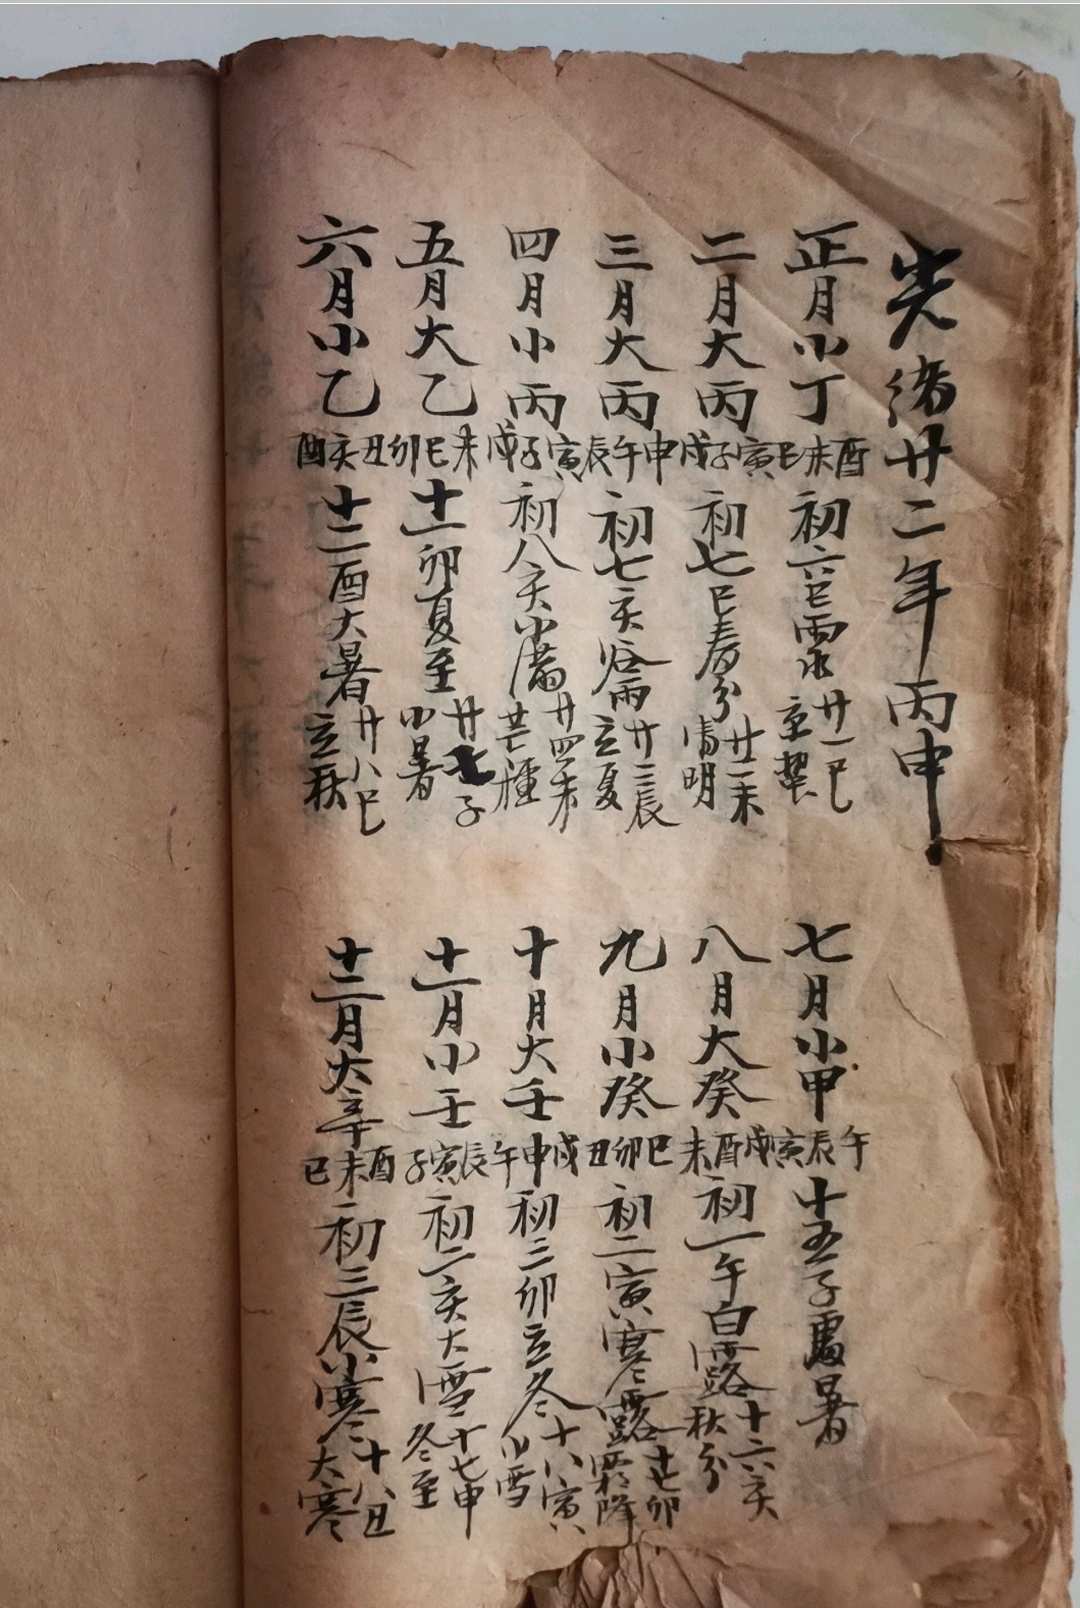 光緒廿二年丙申
正月小丁酉未巳初六巳雨水廿一巳
二月大丙寅子戌初七巳春分廿一未清明
三月大丙申午辰初七亥谷雨廿二辰立夏
四月小丙寅子戌初八亥小滿廿四未芒種
五月大乙未巳卯十一卯夏至廿七子小暑
六月小乙丑亥酉十二酉大暑廿八巳立秋
七月小甲午辰寅十五子處暑
八月大癸戌酉未初一午白露十六亥秋分
九月小癸巳卯丑初二寅寒露十七卯霜降
十月大壬戌申午初三卯立冬十八寅小雪
十一月小壬辰寅子初二亥大雪十七申冬至
十二月大辛酉未巳初三辰小寒十八丑大寒